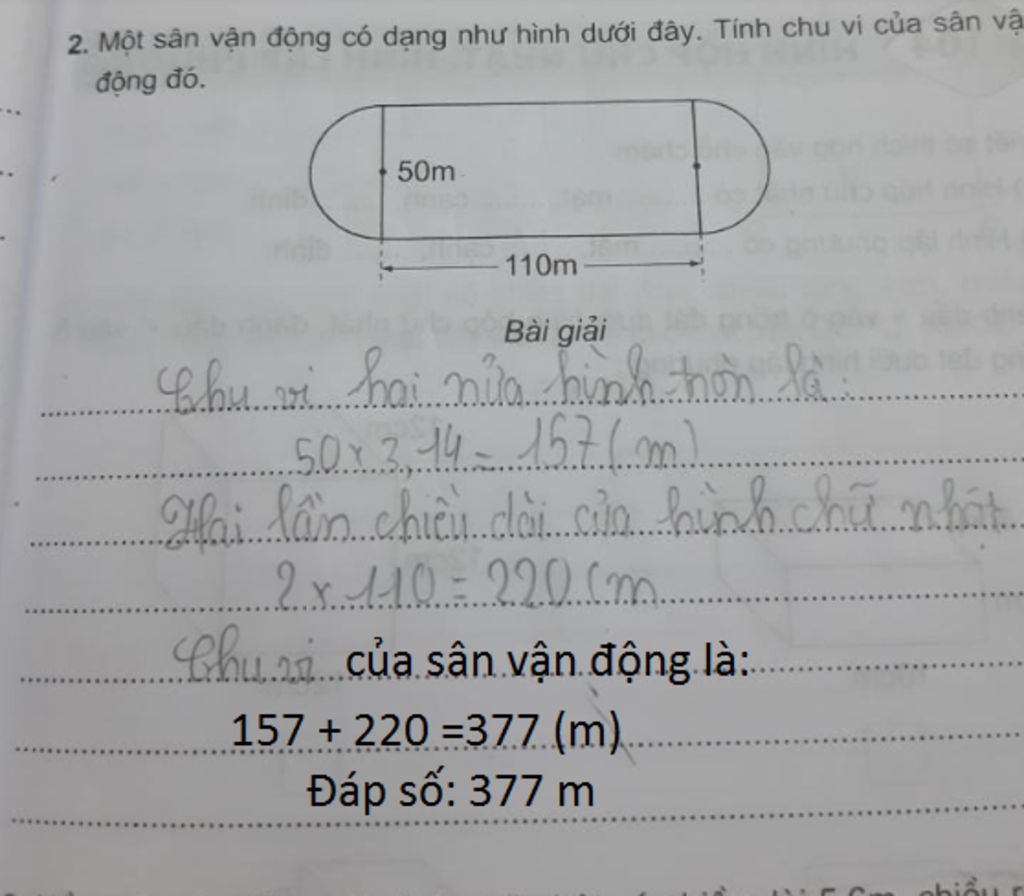 2. Một sân vận động có dạng như hình dưới đây. Tính chu vi của sân vậ
động đó.
50m
110m
Bài giải
Chu vi hai nửa hình tròn là:
50 x 3,14 = 157 (m)
Hai lần chiều dài của hình chữ nhật
2 x 110 = 220 (m
Chu vi của sân vận động là:
157 + 220 =377 (m)
Đáp số: 377 m